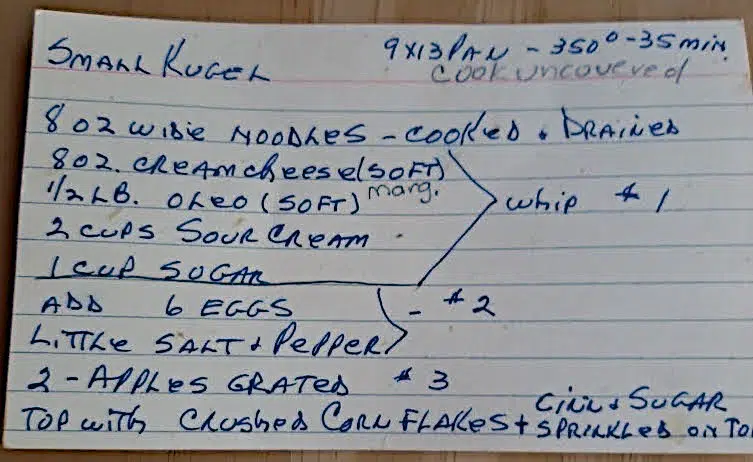 SMALL KUGEL 9X13 PAN - 350° - 35 MIN.
COOK UNCOVERED
8 OZ WIDE NOODLES - COOKED + DRAINED
8 OZ. CREAM CHEESE (SOFT)
1/2 LB. OLEO (SOFT) marg. whip #1
2 CUPS SOUR CREAM
1 CUP SUGAR
ADD 6 EGGS - #2
LITTLE SALT + PEPPER
2 - APPLES GRATED #3
CINN + SUGAR
TOP WITH CRUSHED CORN FLAKES + SPRINKLED ON TO